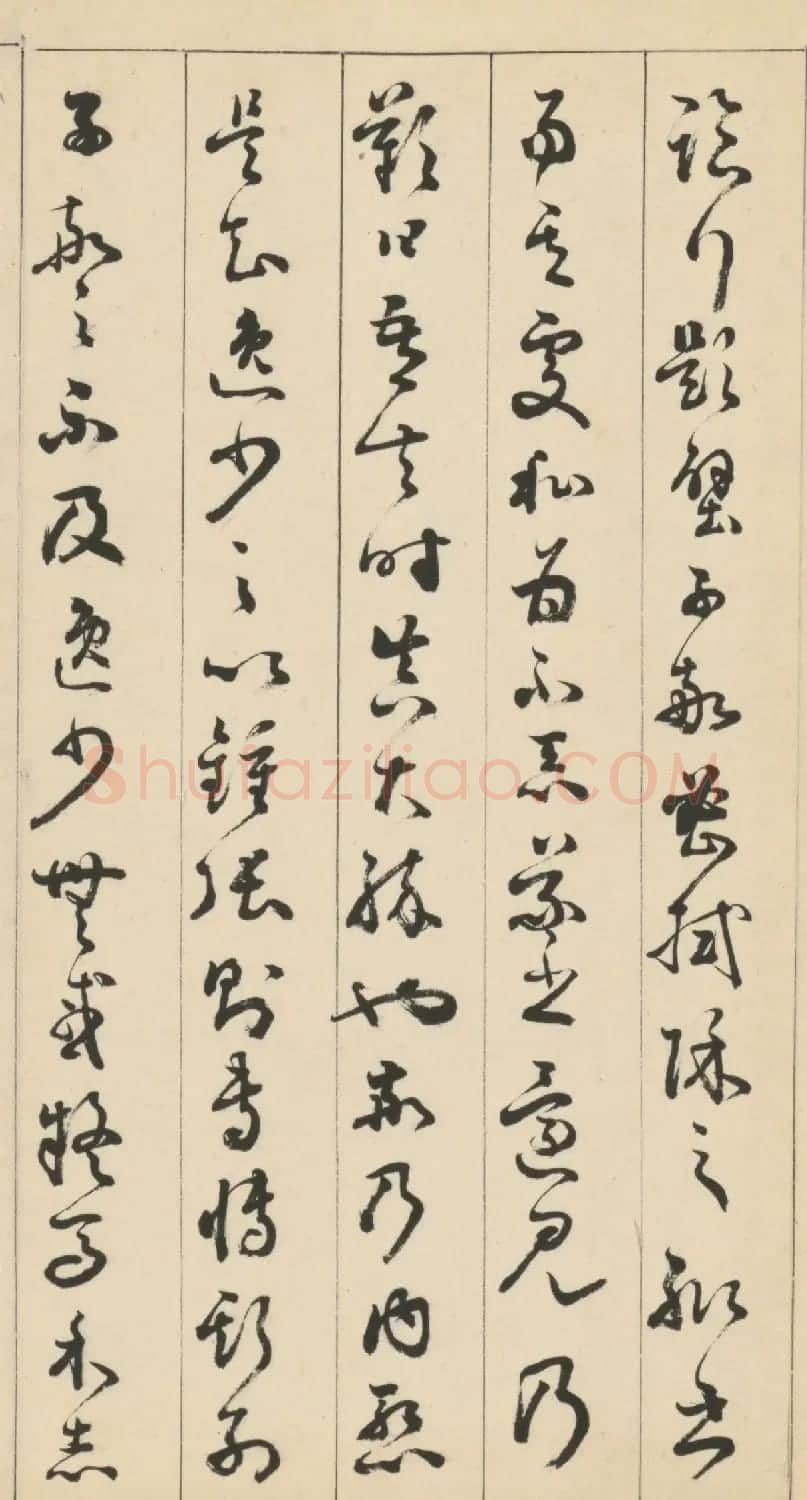 臨行題壁子敬密拭除之輒書
易其處私為不惡羲之還見乃
歎曰吾去時真大醉也敬乃內慙
是知逸少之比鍾張則專博斯別
子敬之不及逸少無或疑焉余志
Shufaziliao.COM